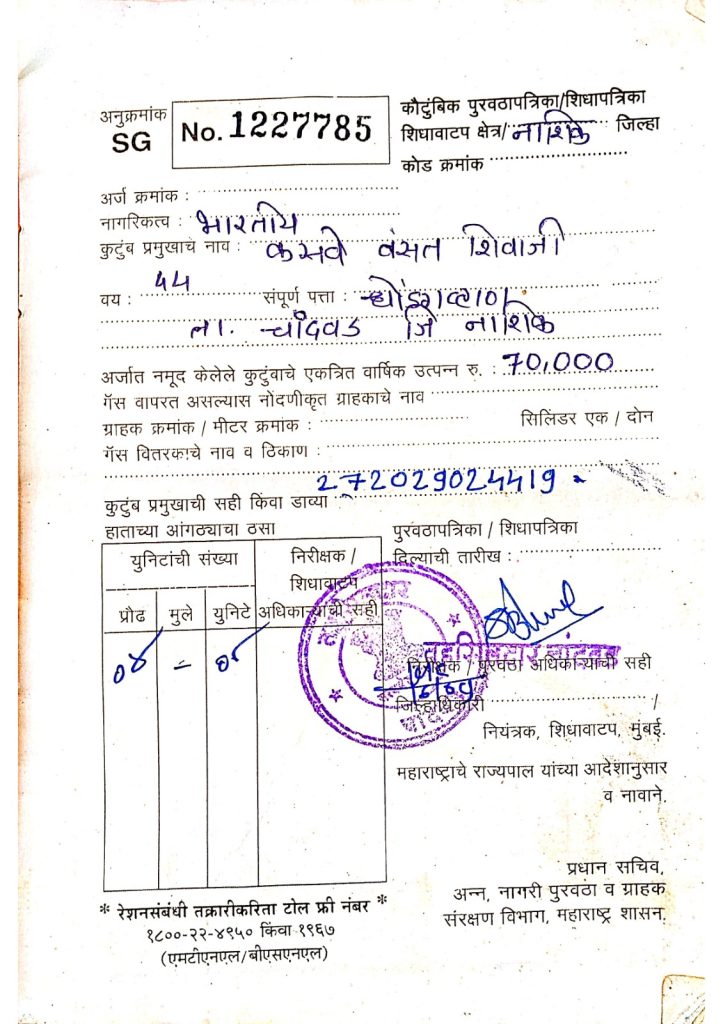 अनुक्रमांक
SG
No. 1227785
कौटुंबिक पुरवठापत्रिका/शिधापत्रिका
शिधावाटप क्षेत्र/ नाशिक जिल्हा
कोड क्रमांक
अर्ज क्रमांक :
नागरिकत्व : भारतीय
कुटुंब प्रमुखाचे नाव : कसवे वंसत शिवाजी
वय : ५५ संपूर्ण पत्ता :
ता. चाँदवड जि नाशिक
अर्जात नमूद केलेले कुटुंवाचे एकत्रित वार्षिक उत्पन्न रु. : 70,000
गॅस वापरत असल्यास नोंदणीकृत ग्राहकाचे नाव
ग्राहक क्रमांक / मीटर क्रमांक : सिलिंडर एक / दोन
गॅस वितरकाचे नाव व ठिकाण :
272029024419
कुटुंब प्रमुखाची सही किंवा डाव्या
हाताच्या आंगठ्याचा ठसा
युनिटांची संख्या
निरीक्षक /
शिधावाटप
अधिकाऱ्यांची सही
प्रौढ मुले युनिटे
०४ = ०४
पुरवठापत्रिका / शिधापत्रिका
दिल्याची तारीख :
तहसिलदार चांदवड
निरीक्षक / पुरवठा अधिकाऱ्याची सही
जिल्हाधिकारी /
नियंत्रक, शिधावाटप, मुंबई.
महाराष्ट्राचे राज्यपाल यांच्या आदेशानुसार
व नावाने.
प्रधान सचिव,
अन्न, नागरी पुरवठा व ग्राहक
संरक्षण विभाग, महाराष्ट्र शासन.
* रेशनसंबंधी तक्रारीकरिता टोल फ्री नंबर *
१८००-२२-४९५० किंवा १९६७
(एमटीएनएल/बीएसएनएल)